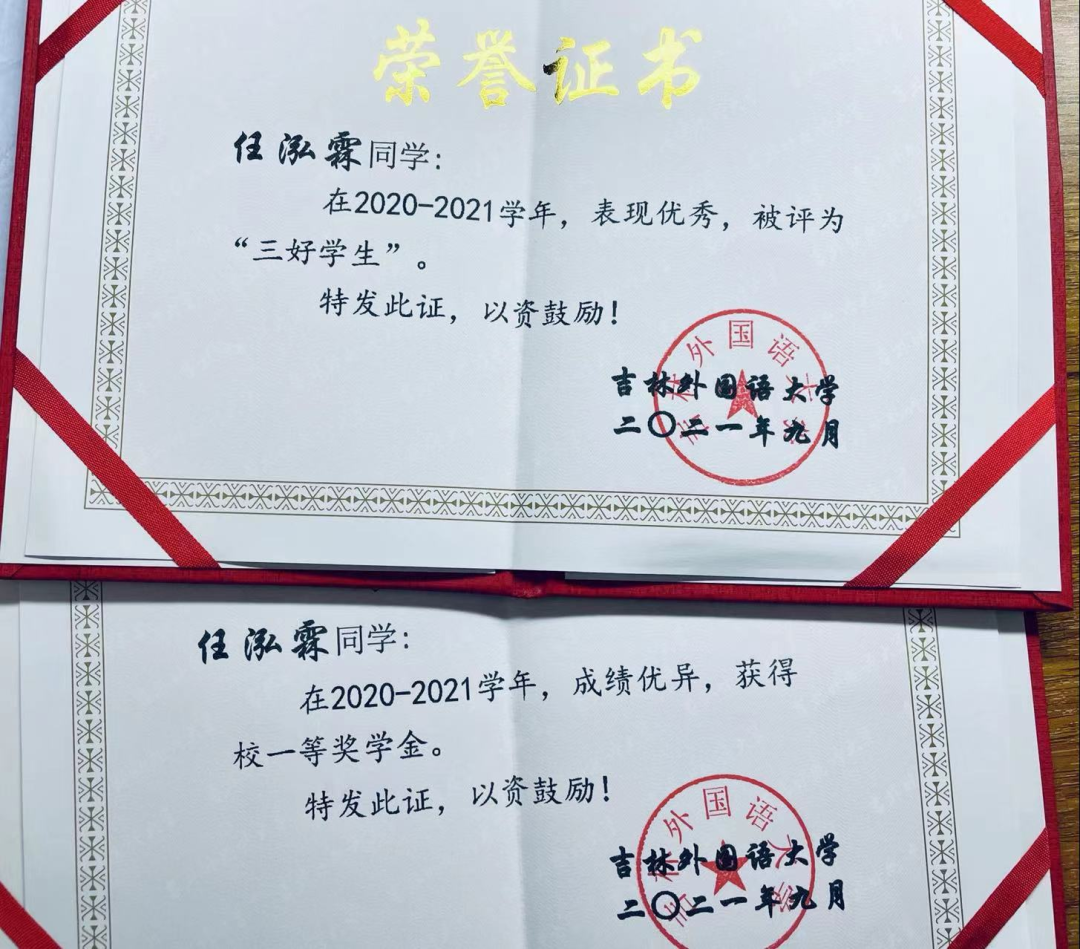 荣誉证书
任泓霖同学：
在2020-2021学年，表现优秀，被评为
“三好学生”。
特发此证，以资鼓励！
吉林外国语大学
吉林外国语大学
二〇二一年九月
任泓霖同学：
在2020-2021学年，成绩优异，获得
校一等奖学金。
特发此证，以资鼓励！
吉林外国语大学
吉林外国语大学
二〇二一年九月